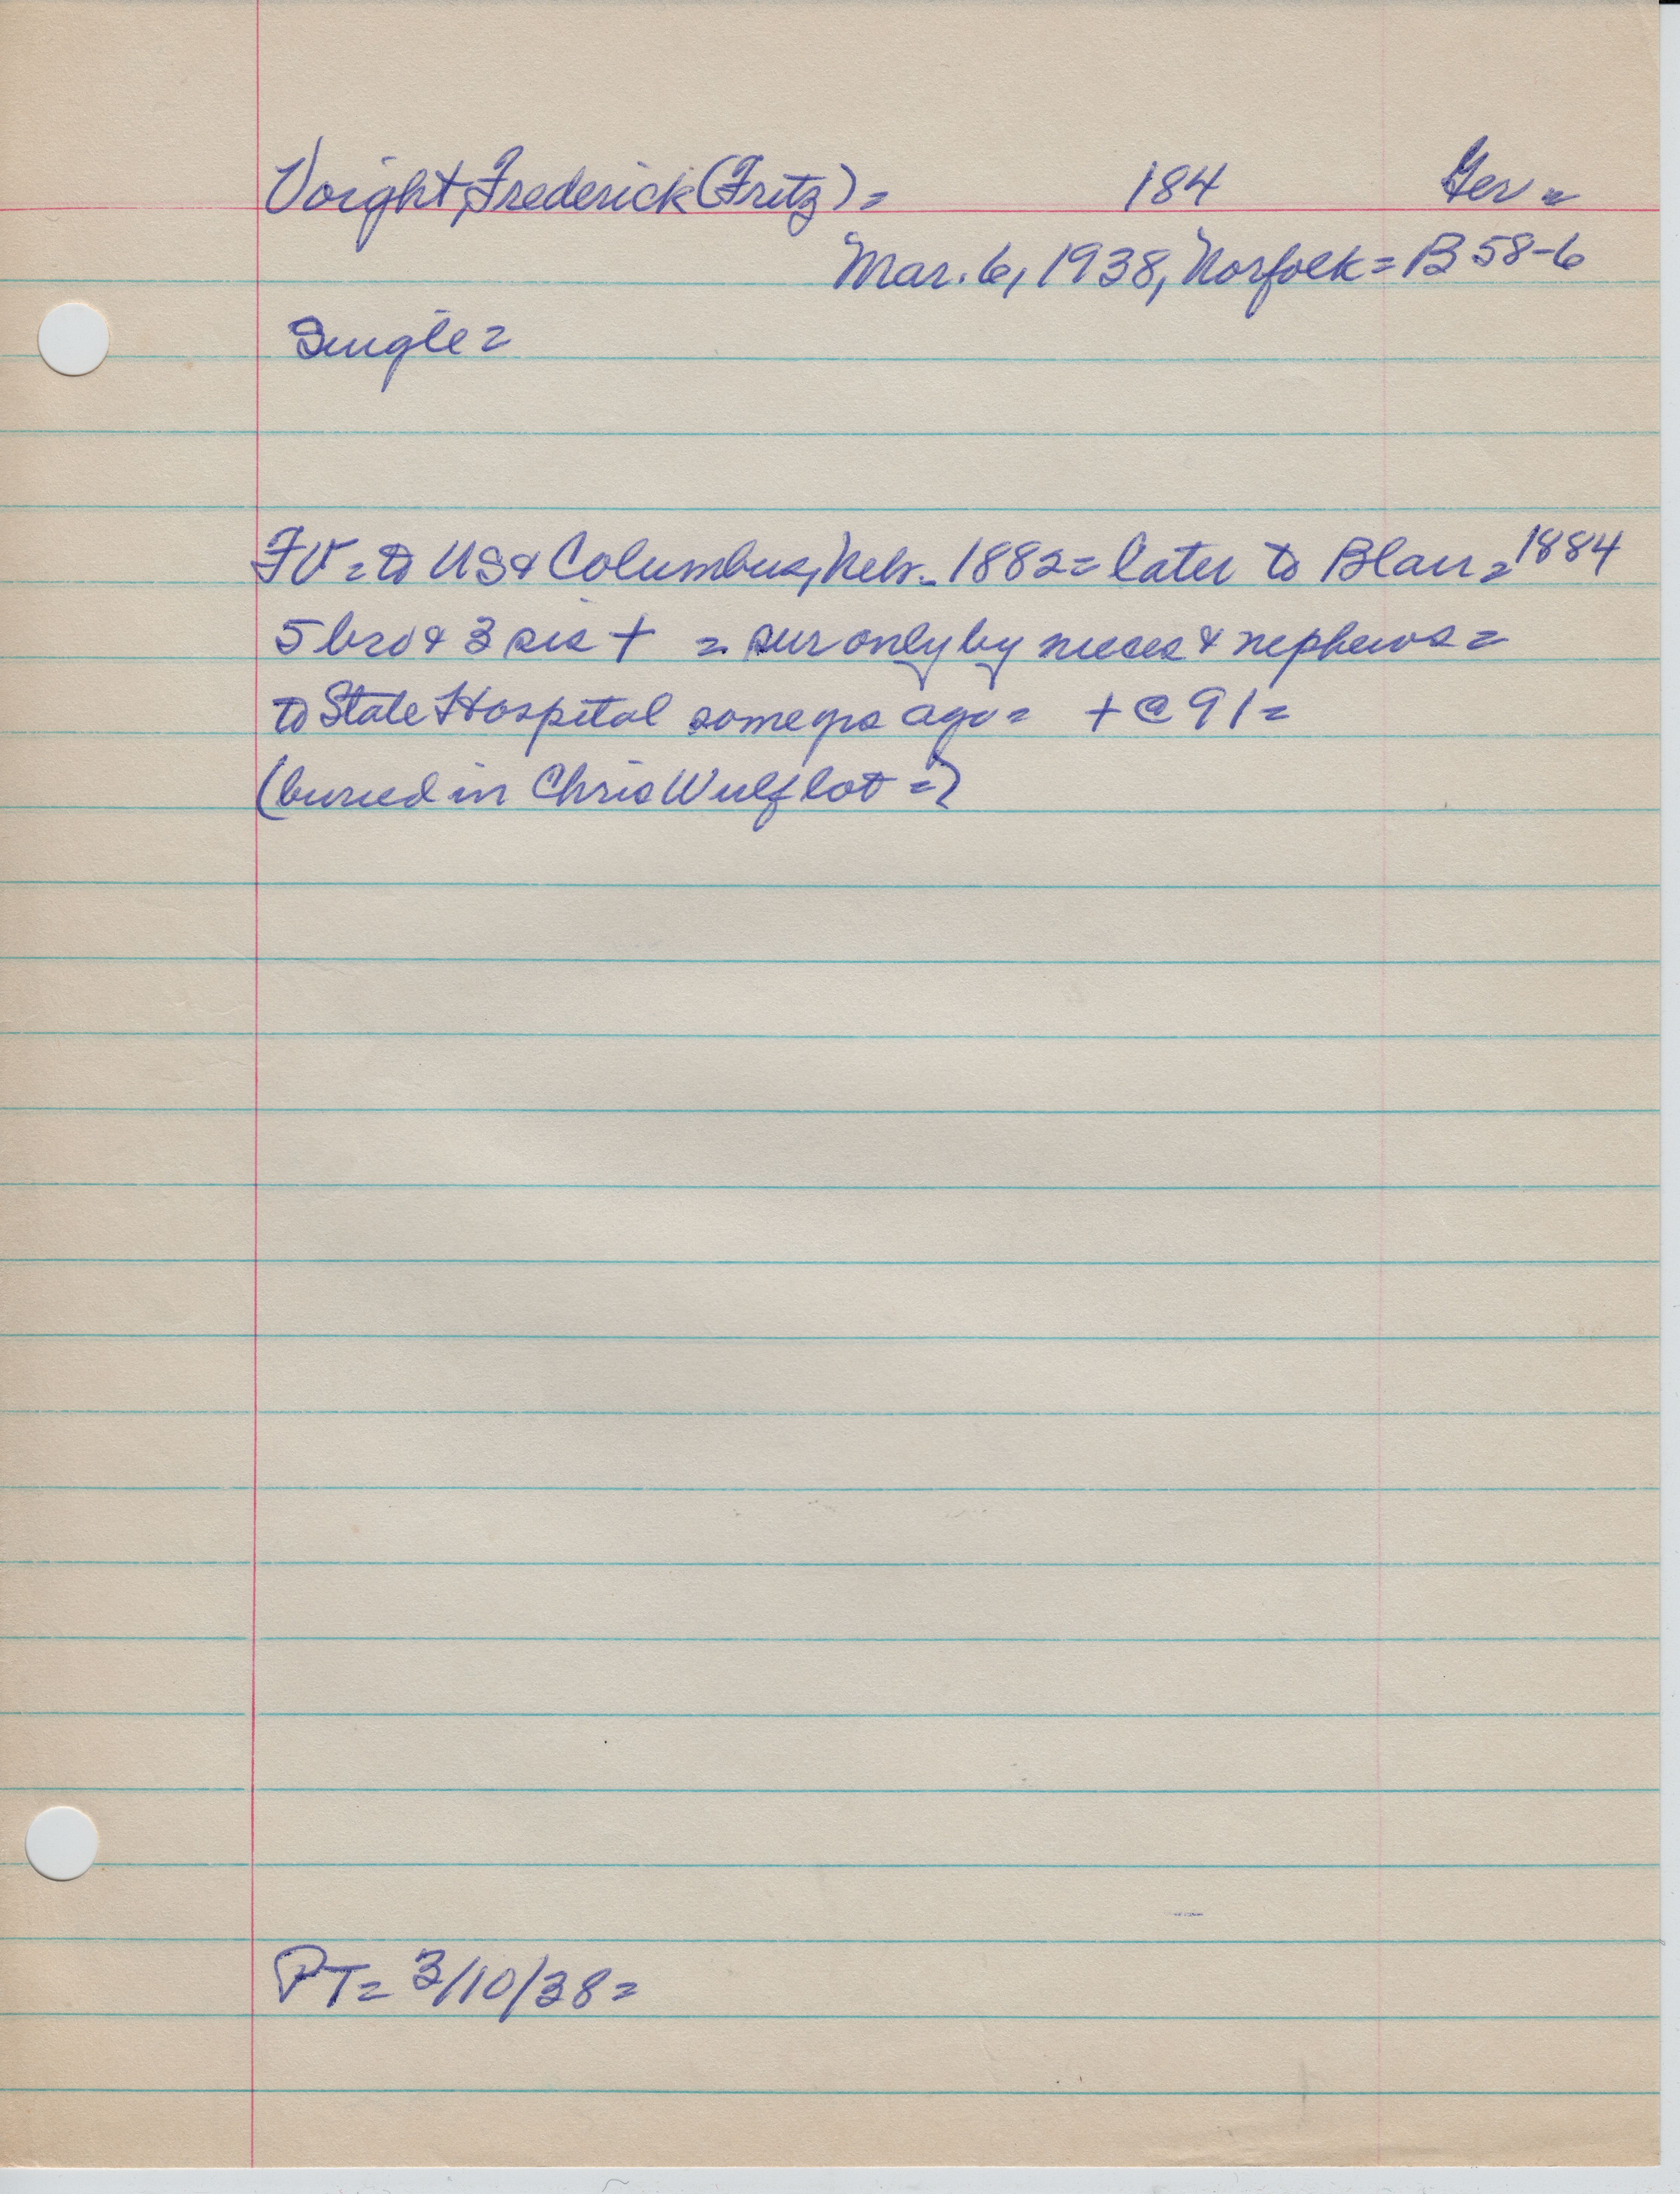 Voight, Frederick (Fritz) = 184 Ger =
Mar. 6, 1938, Norfolk = B 58-6
Single =
FV = to US & Columbus, Neb. 1882 = later to Blair = 1884
5 bro & 3 sis + = sur only by nieces & nephews =
to State Hospital some yrs ago = + @ 91 =
(buried in Chris Wulf lot =)
PT = 3/10/38 =